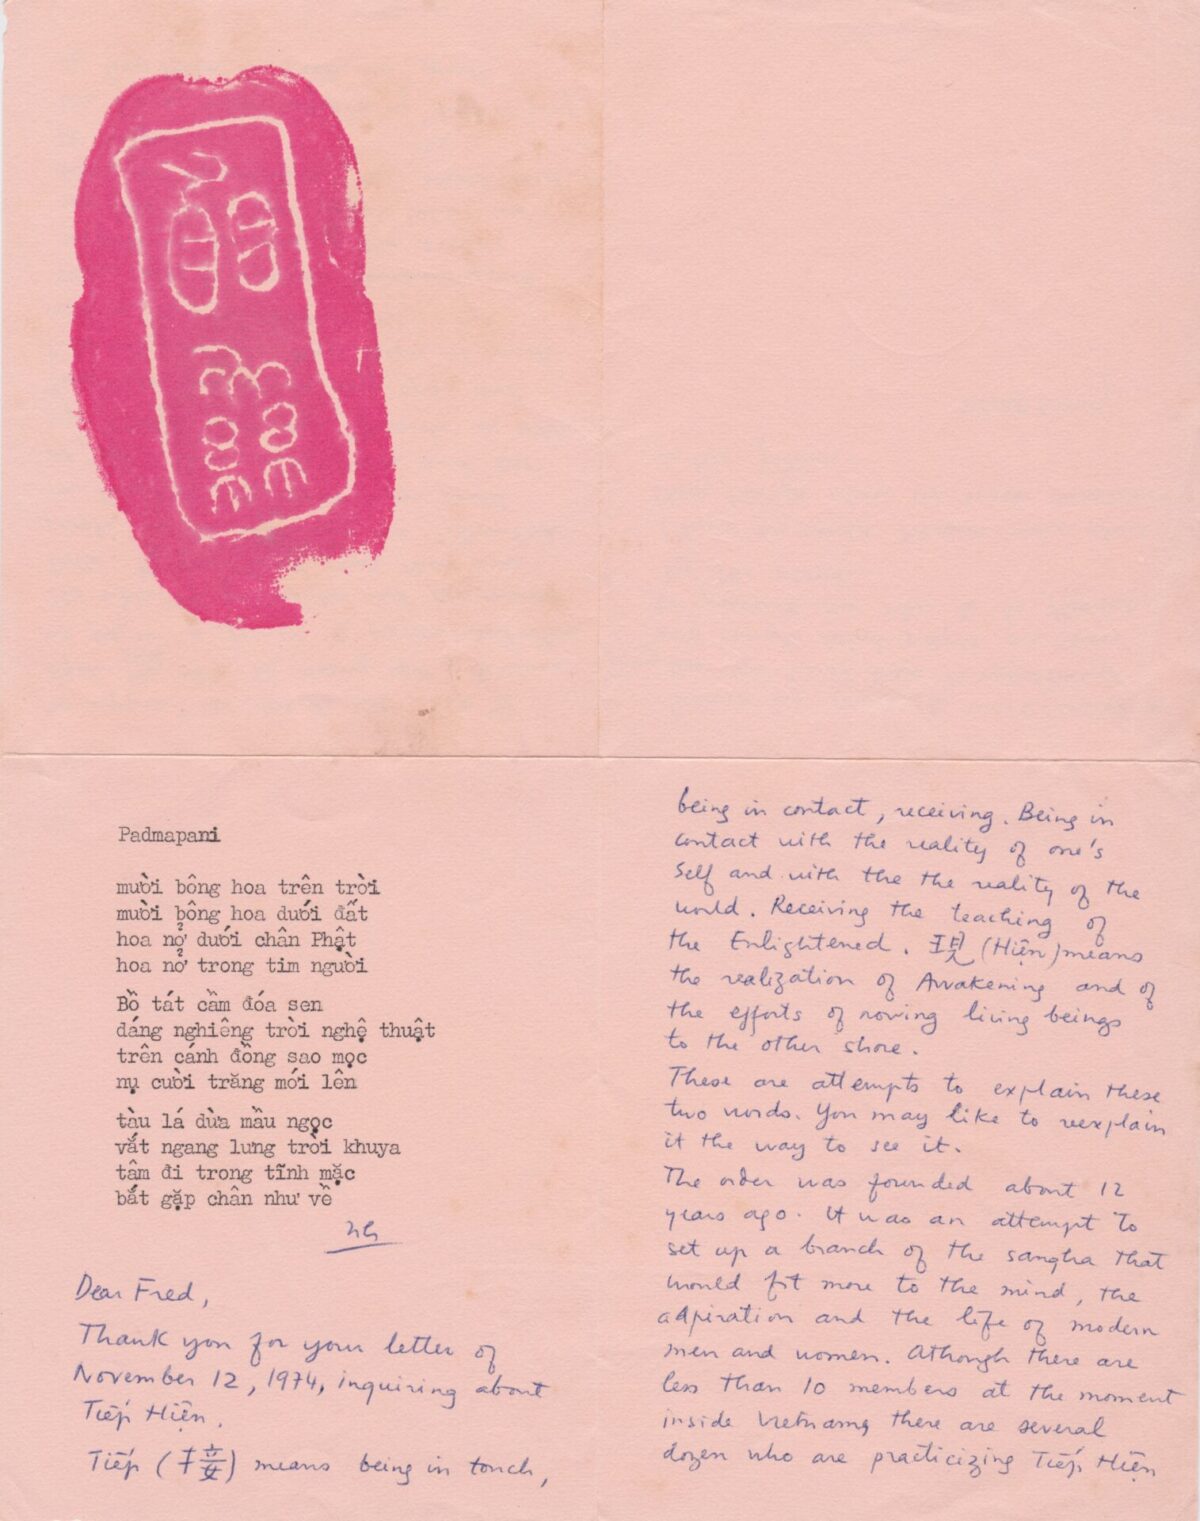 Padmapani
mười bông hoa trên trời
mười bông hoa dưới đất
hoa nở dưới chân Phật
hoa nở trong tim người
Bồ tát cầm đóa sen
dáng nghiêng trời nghệ thuật
trên cánh đồng sao mọc
nụ cười trăng mới lên
tàu lá dừa mầu ngọc
vắt ngang lưng trời khuya
tâm đi trong tĩnh mặc
bắt gặp chân như về
Dear Fred,
Thank you for your letter of
November 12, 1974, inquiring about
Tiếp Hiện.
Tiếp (接) means being in touch,
being in contact, receiving. Being in
contact with the reality of one's
self and with the the reality of the
world. Receiving the teaching of
the Enlightened. 現 (Hiện) means
the realization of Awakening and of
the efforts of rowing living beings
to the other shore.
These are attempts to explain these
two words. You may like to reexplain
it the way to see it.
The order was founded about 12
years ago. It was an attempt to
set up a branch of the sangha that
would fit more to the mind, the
adpiration and the life of modern
men and women. Athough there are
less than 10 members at the moment
inside Vietnam, there are several
dozen who are practicizing Tiếp Hiện